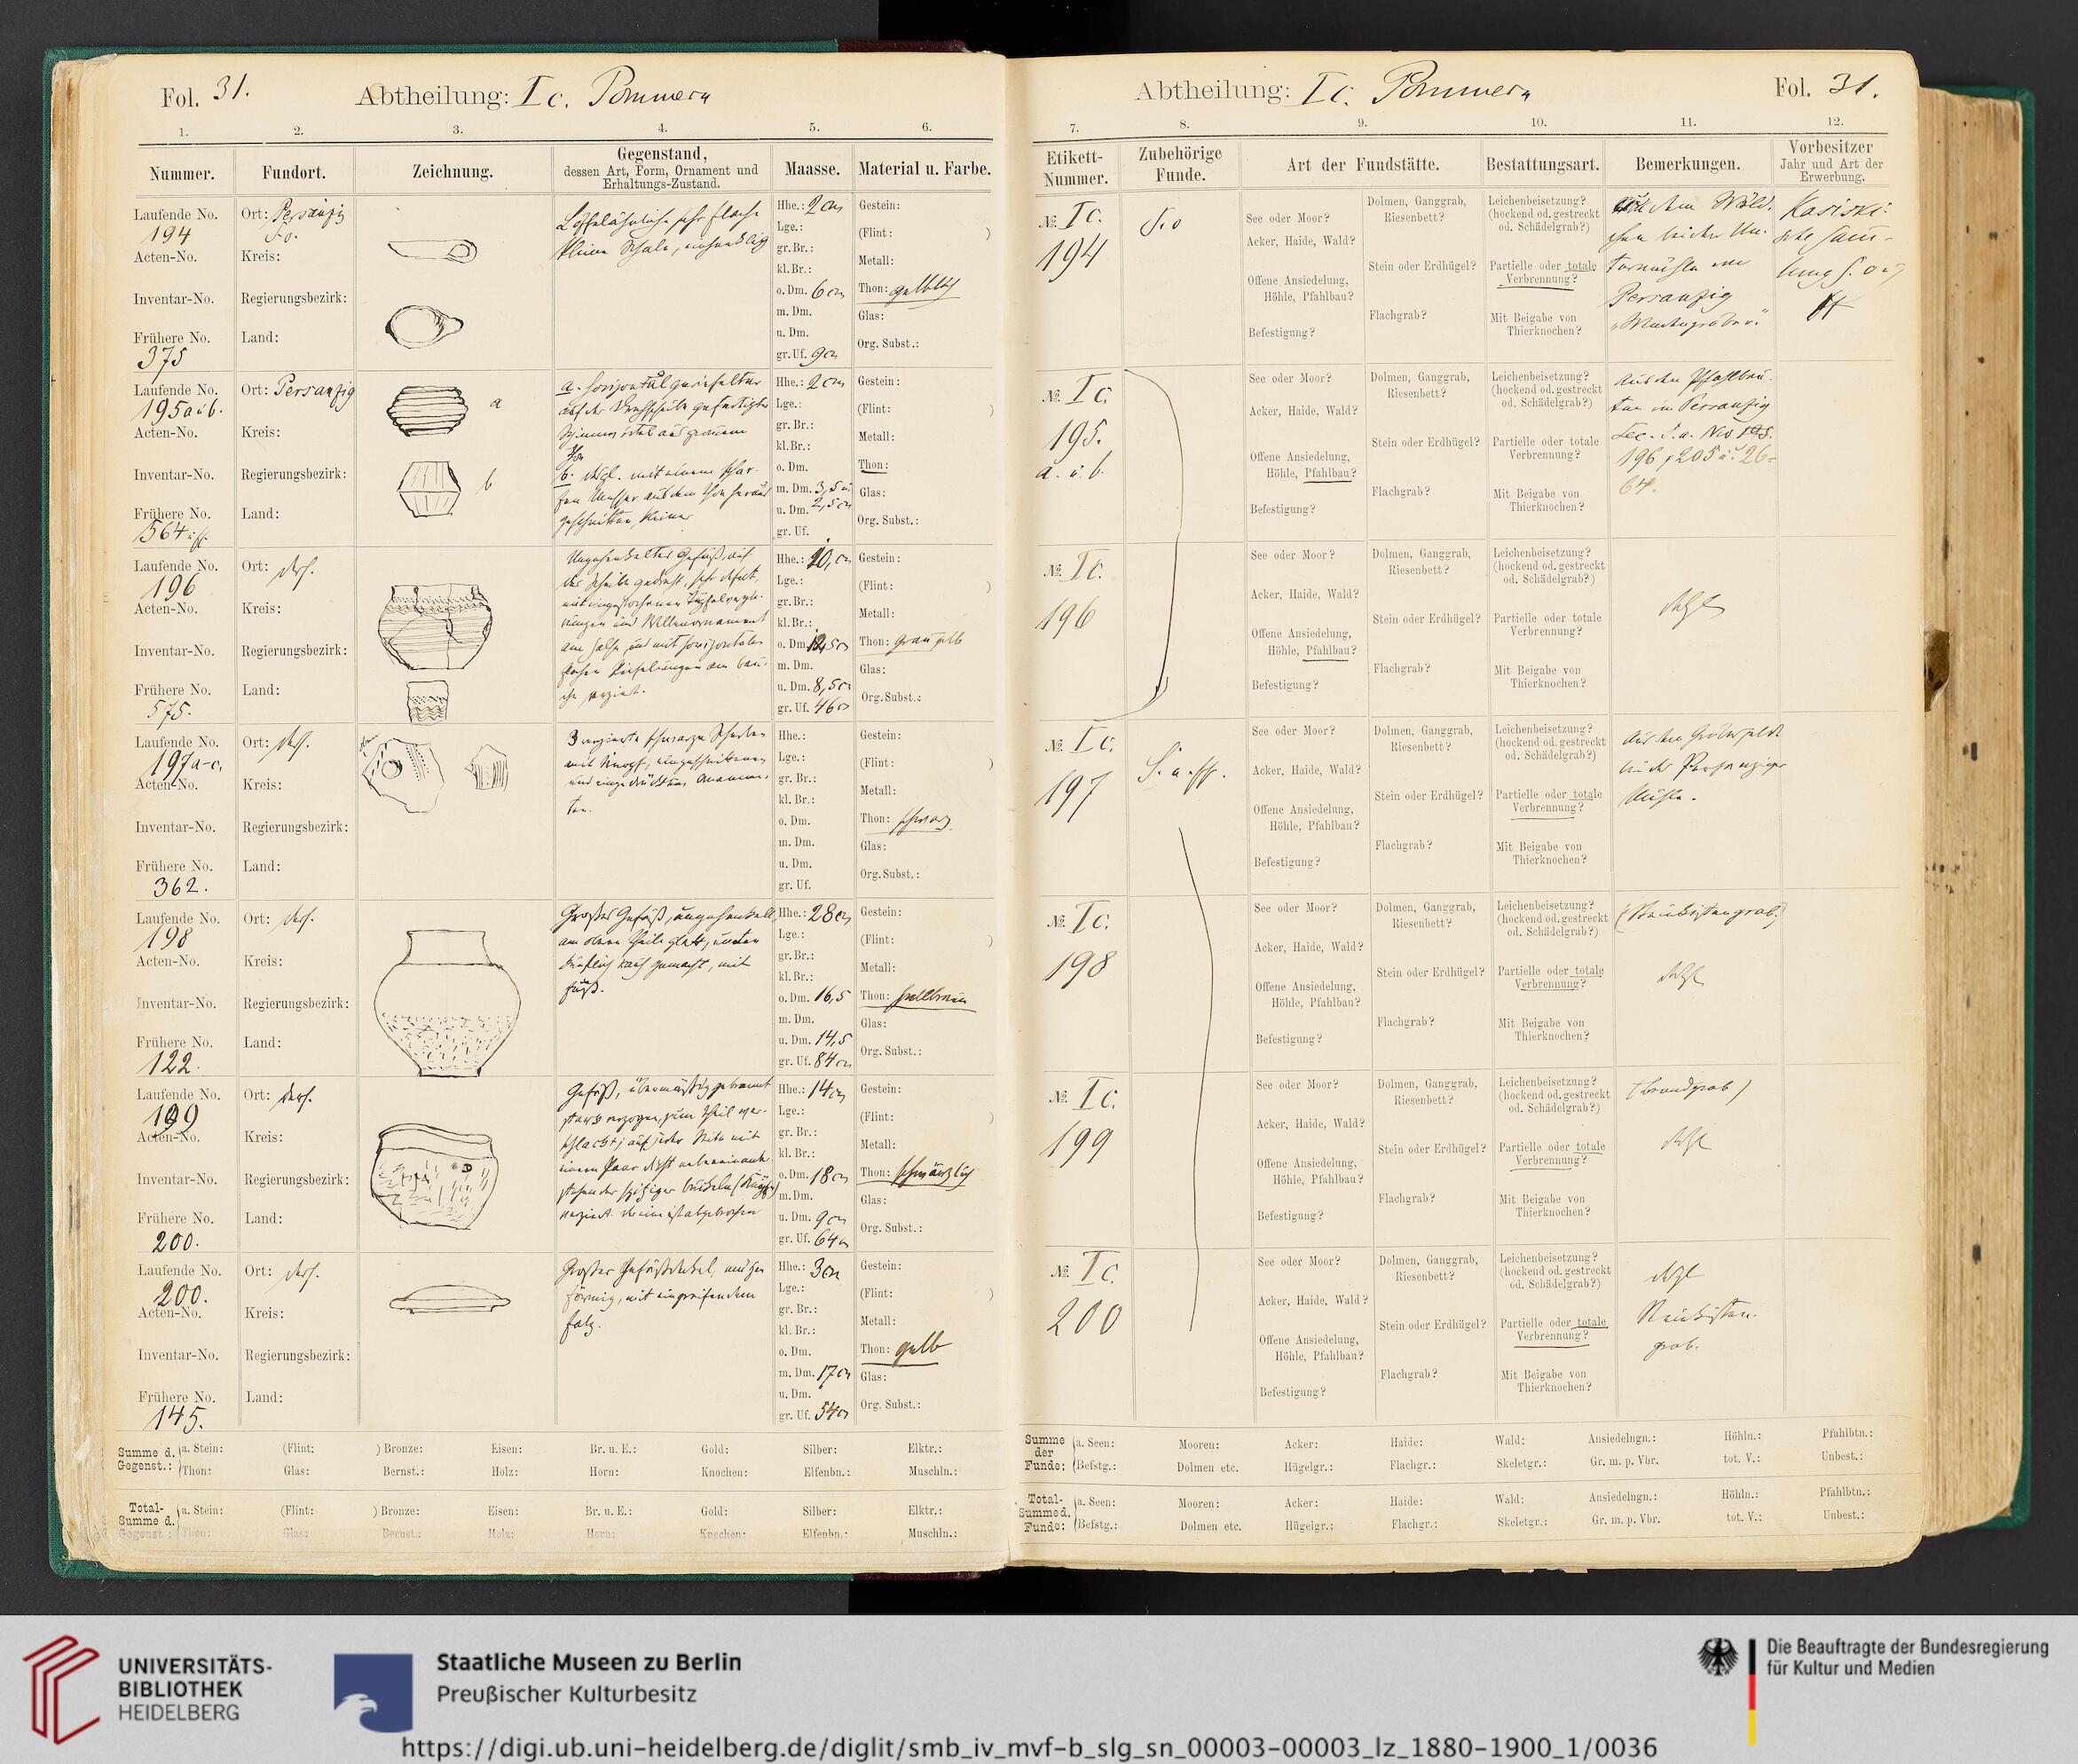 Fol. 31.
Abtheilung: I c. Pommern
1. 2. 3. 4. 5. 6.
Nummer.
Fundort.
Zeichnung.
Gegenstand,
dessen Art, Form, Ornament und
Erhaltungs-Zustand.
Maasse.
Material u. Farbe.
Laufende No.
194
Acten-No.
Inventar-No.
Frühere No.
375
Ort: Persanzig
Kreis:
Regierungsbezirk:
Land:
Löffelähnliche sehr flache
kleine Schale, einhenklig
Hhe.: 2 cm
Lge.:
gr. Br.:
kl. Br.:
o. Dm. 6 cm
m. Dm.
u. Dm.
gr. Uf. 9 cm
Gestein:
(Flint: )
Metall:
Thon: gelblich
Glas:
Org. Subst.:
Laufende No.
195 a u b.
Acten-No.
Inventar-No.
Frühere No.
564 u ff.
Ort: Persanzig
Kreis:
Regierungsbezirk:
Land:
a
b
a. horizontal geriefelter
auf der Drehscheibe gefertigter
Spinnwirtel aus grauem
Thon
b. dsgl. mit einem schar-
fen Messer aus dem Thon heraus
geschnitten, kleiner
Hhe.: 2 cm
Lge.:
gr. Br.:
kl. Br.:
o. Dm.
m. Dm. 3,5 u.
u. Dm. 2,5 cm
gr. Uf.
Gestein:
(Flint: )
Metall:
Thon:
Glas:
Org. Subst.:
Laufende No.
196
Acten-No.
Inventar-No.
Frühere No.
575.
Ort: ders.
Kreis:
Regierungsbezirk:
Land:
Ungehenkeltes Gefäß, auf
der Scheibe gedreht, sehr defect,
mit eingestochenen
und Wellenornament
am Halse und mit horizontalen
am Bau-
che verziert.
Hhe.: 10, cm
Lge.:
gr. Br.:
kl. Br.:
o. Dm. 12,5 cm
m. Dm.
u. Dm. 8,5 cm
gr. Uf. 46 cm
Gestein:
(Flint: )
Metall:
Thon: graugelb
Glas:
Org. Subst.:
Laufende No.
197 a-c.
Acten-No.
Inventar-No.
Frühere No.
362.
Ort: ders.
Kreis:
Regierungsbezirk:
Land:
3 verzierte schwarze Scherben
mit Knopf, eingeschnittenen
und eingedrückten Ornamen-
ten.
Hhe.:
Lge.:
gr. Br.:
kl. Br.:
o. Dm.
m. Dm.
u. Dm.
gr. Uf.
Gestein:
(Flint: )
Metall:
Thon: schwarz
Glas:
Org. Subst.:
Laufende No.
198
Acten-No.
Inventar-No.
Frühere No.
122.
Ort: ders.
Kreis:
Regierungsbezirk:
Land:
Großes Gefäß, ungehenkelt,
am obern Theile glatt, unten
künstlich rauh gemacht, mit
Fuß.
Hhe.: 28 cm
Lge.:
gr. Br.:
kl. Br.:
o. Dm. 16,5
m. Dm.
u. Dm. 14,5
gr. Uf. 84 cm
Gestein:
(Flint: )
Metall:
Thon: hellbraun
Glas:
Org. Subst.:
Laufende No.
199
Acten-No.
Inventar-No.
Frühere No.
200.
Ort: ders.
Kreis:
Regierungsbezirk:
Land:
Gefäß, übermäßig gebrannt
stark verzogen, zum Theil ver-
schlackt; auf jeder Seite mit
einem Paar dicht nebeneinander
stehender spitziger Buckeln (Knöpfe)
verziert. abgebrochen
Hhe.: 14 cm
Lge.:
gr. Br.:
kl. Br.:
o. Dm. 18 cm
m. Dm.
u. Dm. 9 cm
gr. Uf. 64 cm
Gestein:
(Flint: )
Metall:
Thon: schwärzlich
Glas:
Org. Subst.:
Laufende No.
200.
Acten-No.
Inventar-No.
Frühere No.
145.
Ort: ders.
Kreis:
Regierungsbezirk:
Land:
Großer Gefäßdeckel, mützen
förmig, mit eingreifendem
Falz.
Hhe.: 3 cm
Lge.:
gr. Br.:
kl. Br.:
o. Dm.
m. Dm. 17 cm
u. Dm.
gr. Uf. 54 cm
Gestein:
(Flint: )
Metall:
Thon: gelb
Glas:
Org. Subst.:
Summe d. Gegenst.: a. Stein: (Flint: ) Bronze: Eisen: Br. u. E.: Gold: Silber: Elktr.:
Thon: Glas: Bernst.: Holz: Horn: Knochen: Elfenbn.: Muschln.:
Total-Summe d. Gegenst.: a. Stein: (Flint: ) Bronze: Eisen: Br. u. E.: Gold: Silber: Elktr.:
Thon: Glas: Bernst.: Holz: Horn: Knochen: Elfenbn.: Muschln.:
Abtheilung: I c. Pommern
Fol. 31.
7. 8. 9. 10. 11. 12.
Etikett-
Nummer.
Zubehörige
Funde.
Art der Fundstätte.
Bestattungsart.
Bemerkungen.
Vorbesitzer
Jahr und Art der
Erwerbung.
No. I c.
194
S. o
See oder Moor?
Acker, Haide, Wald?
Offene Ansiedelung,
Höhle, Pfahlbau?
Befestigung?
Dolmen, Ganggrab,
Riesenbett?
Stein oder Erdhügel?
Flachgrab?
Leichenbeisetzung?
(hockend od. gestreckt
od. Schädelgrab?)
Partielle oder totale
Verbrennung?
Mit Beigabe von
Thierknochen?
aus dem Wäld-
chen bei der Un-
termühle von
Persanzig
Kasiski-
sche Samm-
lung S. o.
No. I c.
195.
a. u. b.
See oder Moor?
Acker, Haide, Wald?
Offene Ansiedelung,
Höhle, Pfahlbau?
Befestigung?
Dolmen, Ganggrab,
Riesenbett?
Stein oder Erdhügel?
Flachgrab?
Leichenbeisetzung?
(hockend od. gestreckt
od. Schädelgrab?)
Partielle oder totale
Verbrennung?
Mit Beigabe von
Thierknochen?
Aus den Pfahlbau-
ten im Persanzig
See. S. a. No 195.
196, 205 u. 26=
64.
No. I c.
196
See oder Moor?
Acker, Haide, Wald?
Offene Ansiedelung,
Höhle, Pfahlbau?
Befestigung?
Dolmen, Ganggrab,
Riesenbett?
Stein oder Erdhügel?
Flachgrab?
Leichenbeisetzung?
(hockend od. gestreckt
od. Schädelgrab?)
Partielle oder totale
Verbrennung?
Mit Beigabe von
Thierknochen?
dsgl
No. I c.
197
S. a. ff.
See oder Moor?
Acker, Haide, Wald?
Offene Ansiedelung,
Höhle, Pfahlbau?
Befestigung?
Dolmen, Ganggrab,
Riesenbett?
Stein oder Erdhügel?
Flachgrab?
Leichenbeisetzung?
(hockend od. gestreckt
od. Schädelgrab?)
Partielle oder totale
Verbrennung?
Mit Beigabe von
Thierknochen?
Aus dem Gräberfelde
bei der Persanziger
Mühle.
No. I c.
198
See oder Moor?
Acker, Haide, Wald?
Offene Ansiedelung,
Höhle, Pfahlbau?
Befestigung?
Dolmen, Ganggrab,
Riesenbett?
Stein oder Erdhügel?
Flachgrab?
Leichenbeisetzung?
(hockend od. gestreckt
od. Schädelgrab?)
Partielle oder totale
Verbrennung?
Mit Beigabe von
Thierknochen?
(Steinkistengrab)
dsgl
No. I c.
199
See oder Moor?
Acker, Haide, Wald?
Offene Ansiedelung,
Höhle, Pfahlbau?
Befestigung?
Dolmen, Ganggrab,
Riesenbett?
Stein oder Erdhügel?
Flachgrab?
Leichenbeisetzung?
(hockend od. gestreckt
od. Schädelgrab?)
Partielle oder totale
Verbrennung?
Mit Beigabe von
Thierknochen?
(Brandgrab)
dsgl
No. I c.
200
See oder Moor?
Acker, Haide, Wald?
Offene Ansiedelung,
Höhle, Pfahlbau?
Befestigung?
Dolmen, Ganggrab,
Riesenbett?
Stein oder Erdhügel?
Flachgrab?
Leichenbeisetzung?
(hockend od. gestreckt
od. Schädelgrab?)
Partielle oder totale
Verbrennung?
Mit Beigabe von
Thierknochen?
dsgl
Steinkisten-
grab.
Summe der Funde: a. Seen: Mooren: Acker: Haide: Wald: Ansiedelngn.: Höhln.: Pfahlbtn.:
Befstg.: Dolmen etc. Hügelgr.: Flachgr.: Skeletgr.: Gr. m. p. Vbr. tot. V.: Unbest.:
Total-Summe d. Funde: a. Seen: Mooren: Acker: Haide: Wald: Ansiedelngn.: Höhln.: Pfahlbtn.:
Befstg.: Dolmen etc. Hügelgr.: Flachgr.: Skeletgr.: Gr. m. p. Vbr. tot. V.: Unbest.:
UNIVERSITÄTS-
BIBLIOTHEK
HEIDELBERG
Staatliche Museen zu Berlin
Preußischer Kulturbesitz
Die Beauftragte der Bundesregierung
für Kultur und Medien
https://digi.ub.uni-heidelberg.de/diglit/smb_iv_mvf-b_slg_sn_00003-00003_lz_1880-1900_1/0036